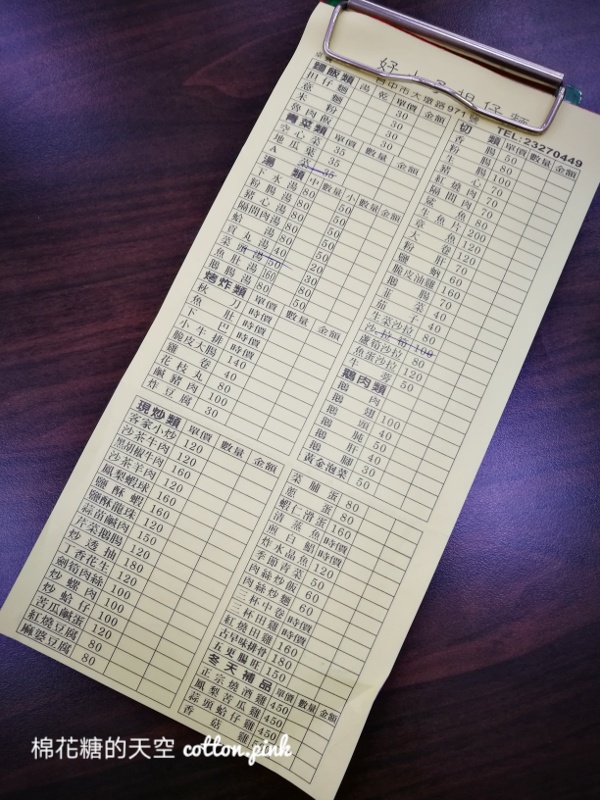 台中市大墩路971號
TEL:23270449
麵飯類 湯 乾 單價 金額
担仔麵 30
意麵 30
米粉 30
魯肉飯 30
青菜類 單價 數量 金額
空心菜 35
地瓜葉 35
A菜 35
湯類 中 數量 小 數量 金額
下水湯 80 50
粉腸湯 80 50
豬心湯 80 50
隔間肉湯 80 50
蛤湯 80 50
貢丸湯 40 20
菜頭湯 50 30
魚肚湯 160 80
鵝腸湯 80 50
烤炸類 單價 數量 金額
秋刀魚 時價
魚肚 時價
下巴 時價
小牛排 時價
脆皮大腸 140
鹽卷 40
花枝丸 80
鹹豬肉 100
炸豆腐 30
切類 單價 數量 金額
香腸 50
粉腸 80
生腸 80
豬心 100
紅燒肉 70
隔間肉 70
鯊魚 80
生魚片 200
章魚 120
大卷 120
粉肝 70
鹽蚋 60
脆皮油雞 160
鵝腸 70
韭菜 40
茄子 40
生菜沙拉 80
沙拉筍 100
蘆筍沙拉 80
魚蛋沙拉 120
牛蒡 50
鵝肉類
鵝肉
鵝翅 100
鵝頭 40
鵝肫 50
鵝肝 40
鵝腳 30
黃金泡菜 50
現炒類 單價 數量 金額
客家小炒 120
沙茶牛肉 120
黑胡椒牛肉 160
沙茶羊肉 120
鳳梨蝦球 160
鹽酥蝦 160
鹽酥龍珠 120
蒜苗鹹肉 150
芹菜鵝腸 120
炒透抽 180
丁香花生 120
劍筍肉絲 100
炒螺肉 100
炒蛤仔 100
苦瓜鹹蛋 120
紅燒豆腐 80
麻婆豆腐 80
菜脯蛋 80
蔥蛋 80
蝦仁滑蛋 160
清蒸魚 時價
煎白鯧 時價
炸水晶魚 120
季節青菜 50
肉絲炒飯 60
肉絲炒麵 60
三杯中卷 時價
三杯田雞 時價
紅燒田雞 160
古早味排骨 180
五更腸旺 150
冬天補品 單價 數量 金額
正宗燒酒雞 450
鳳梨苦瓜雞 450
蒜頭蛤仔雞 450
香菇雞 450
棉花糖的天空 cotton.pink